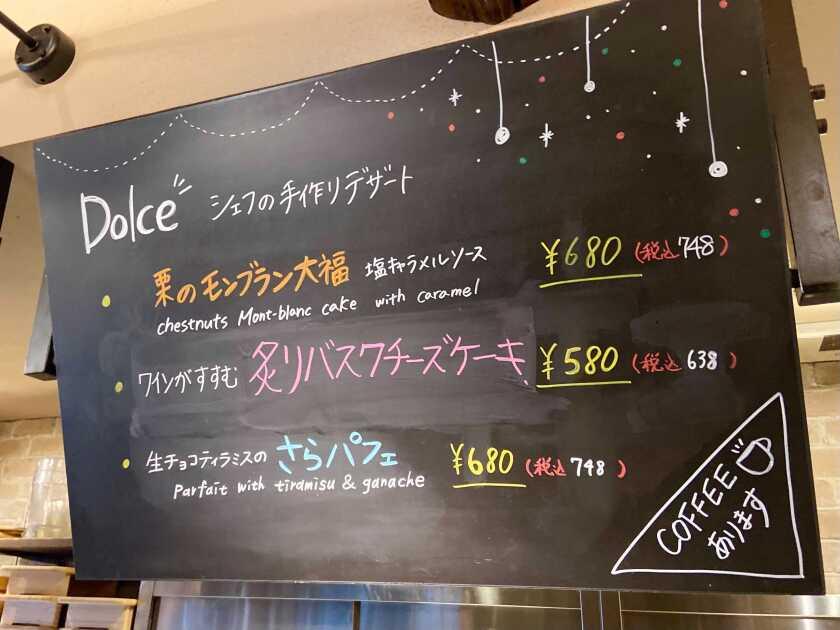 Dolce シェフの手作りデザート
栗のモンブラン大福 塩キャラメルソース ¥680 (税込748)
chestnuts Mont-blanc cake with caramel
ワインがすすむ 炙りバスクチーズケーキ ¥580 (税込638)
生チョコティラミスの さらパフェ ¥680 (税込748)
Parfait with tiramisu & ganache
COFFEE
あります